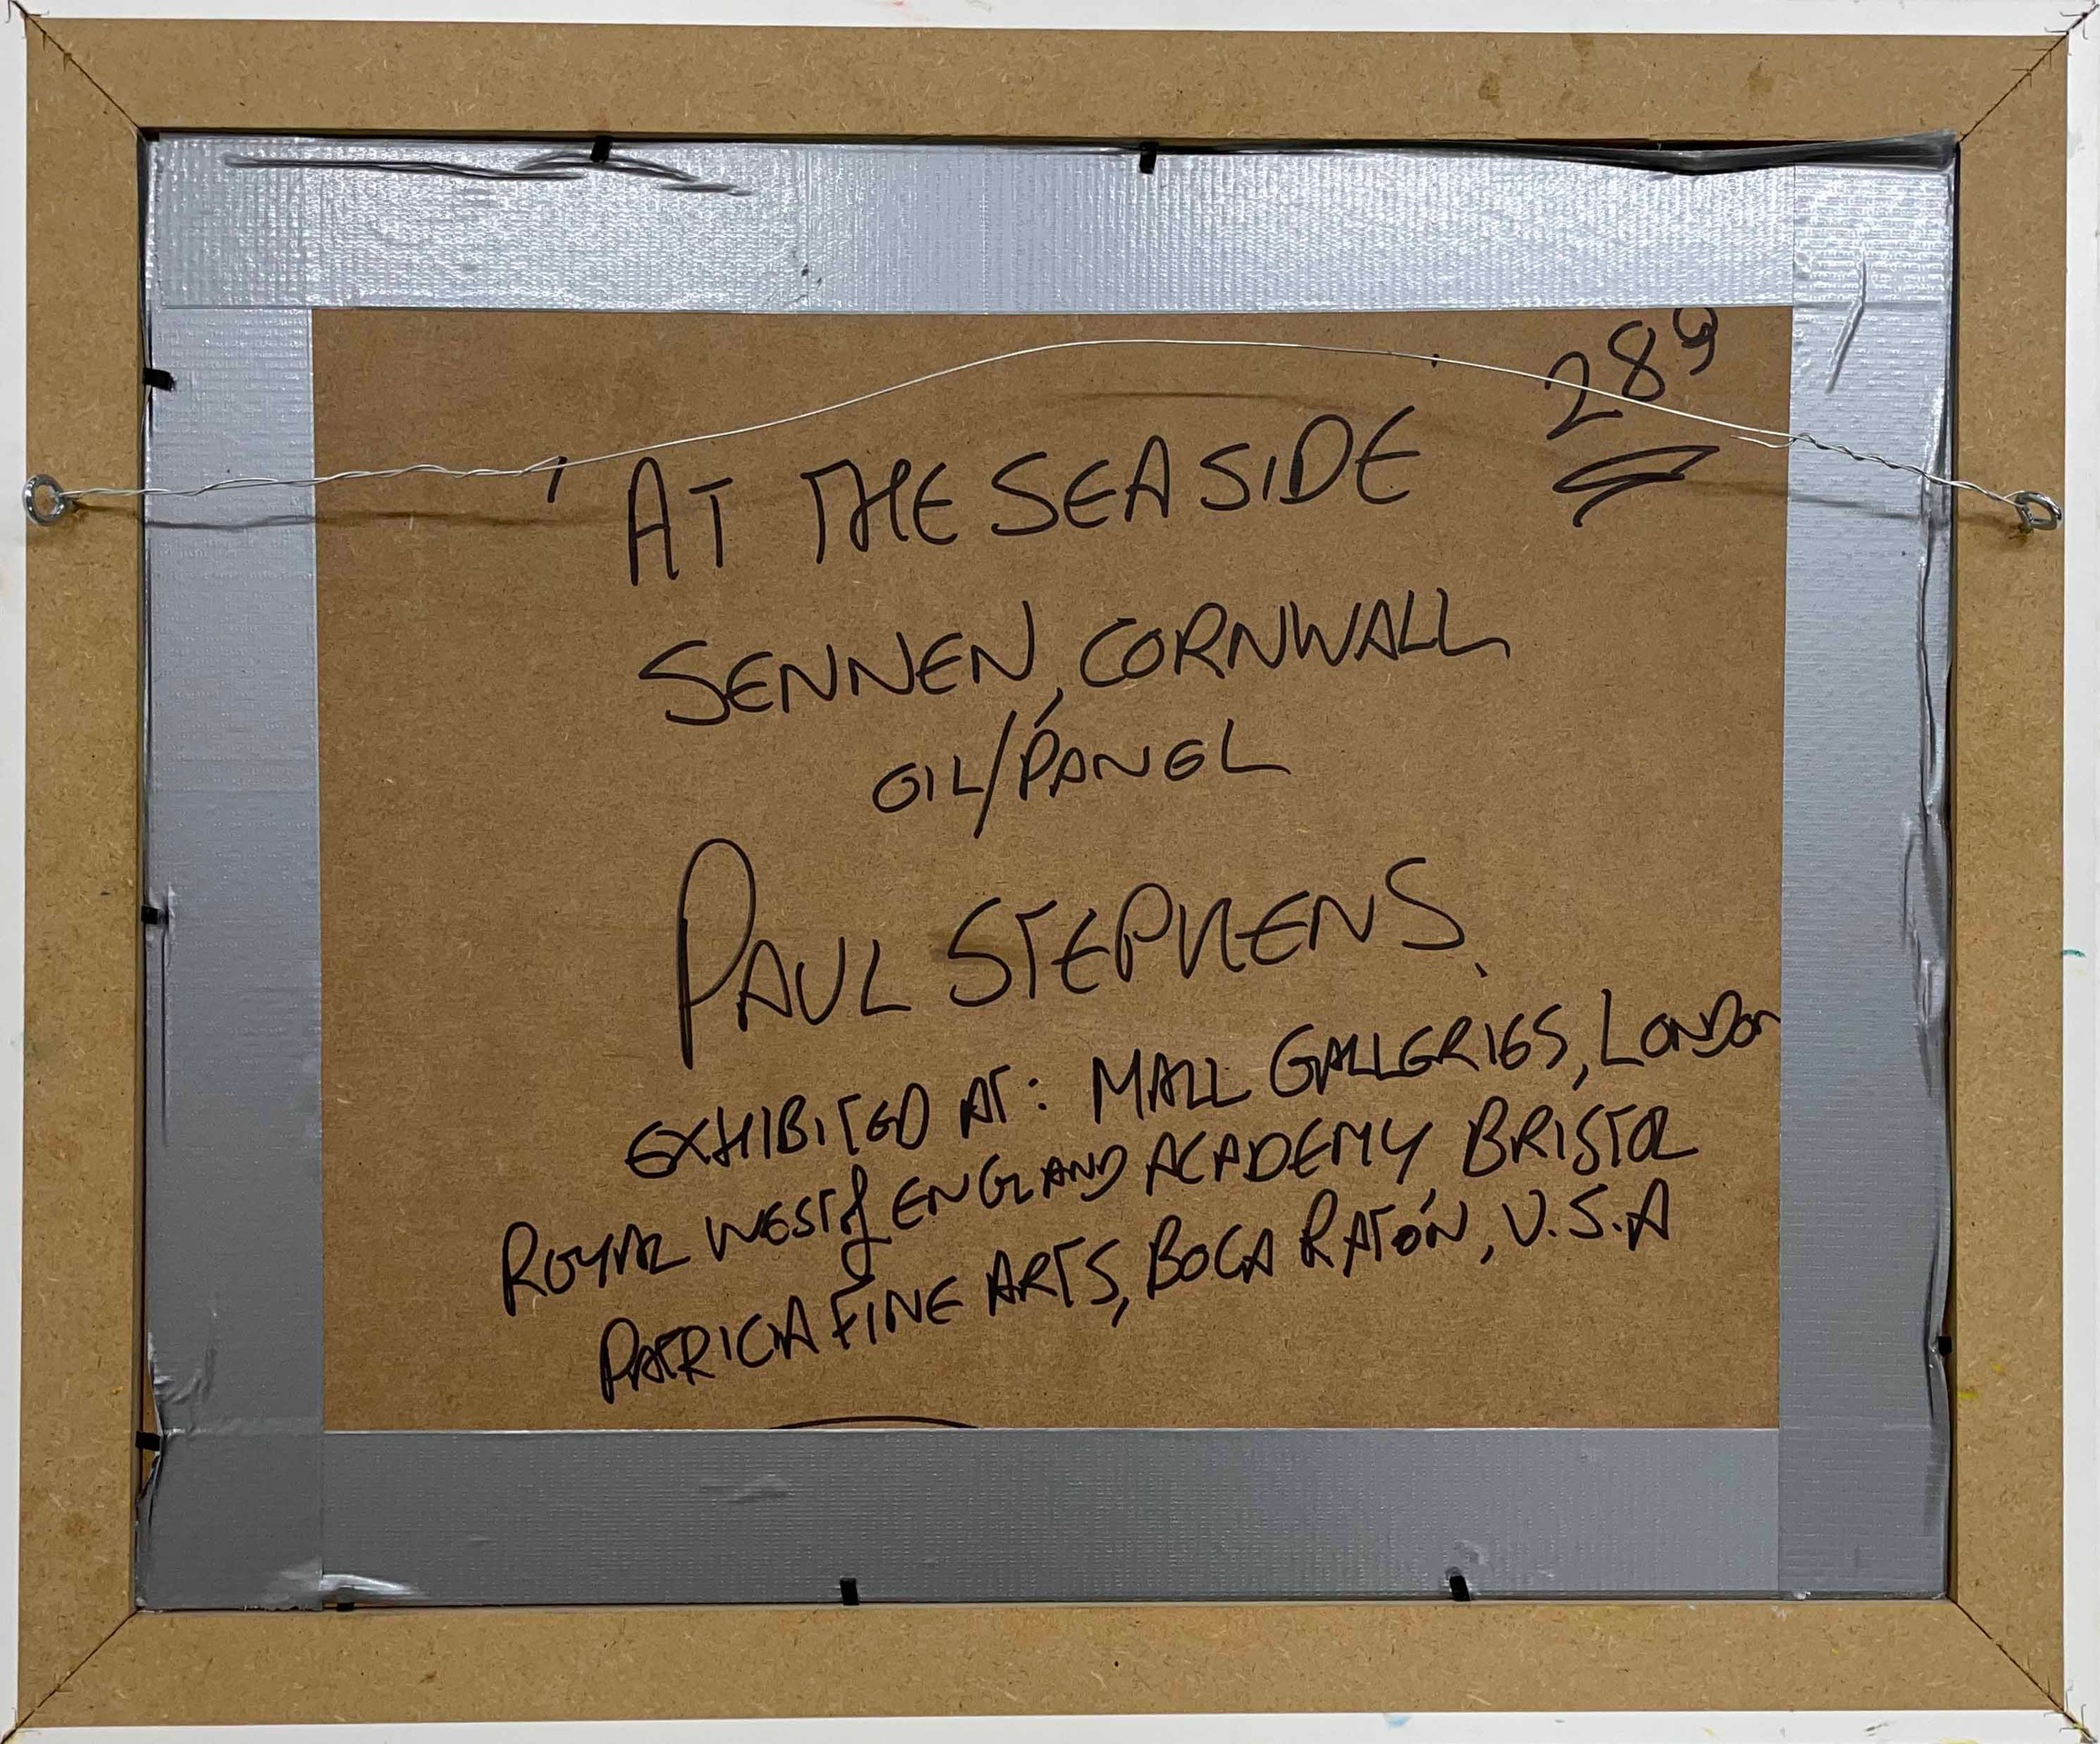 289
' AT THE SEASIDE
SENNEN, CORNWALL
OIL/PANEL
PAUL STEPHENS.
EXHIBITED AT: MALL GALLERIES, LONDON
ROYAL WEST of ENGLAND ACADEMY BRISTOL
PATRICIA FINE ARTS, BOCA RATÓN, U.S.A